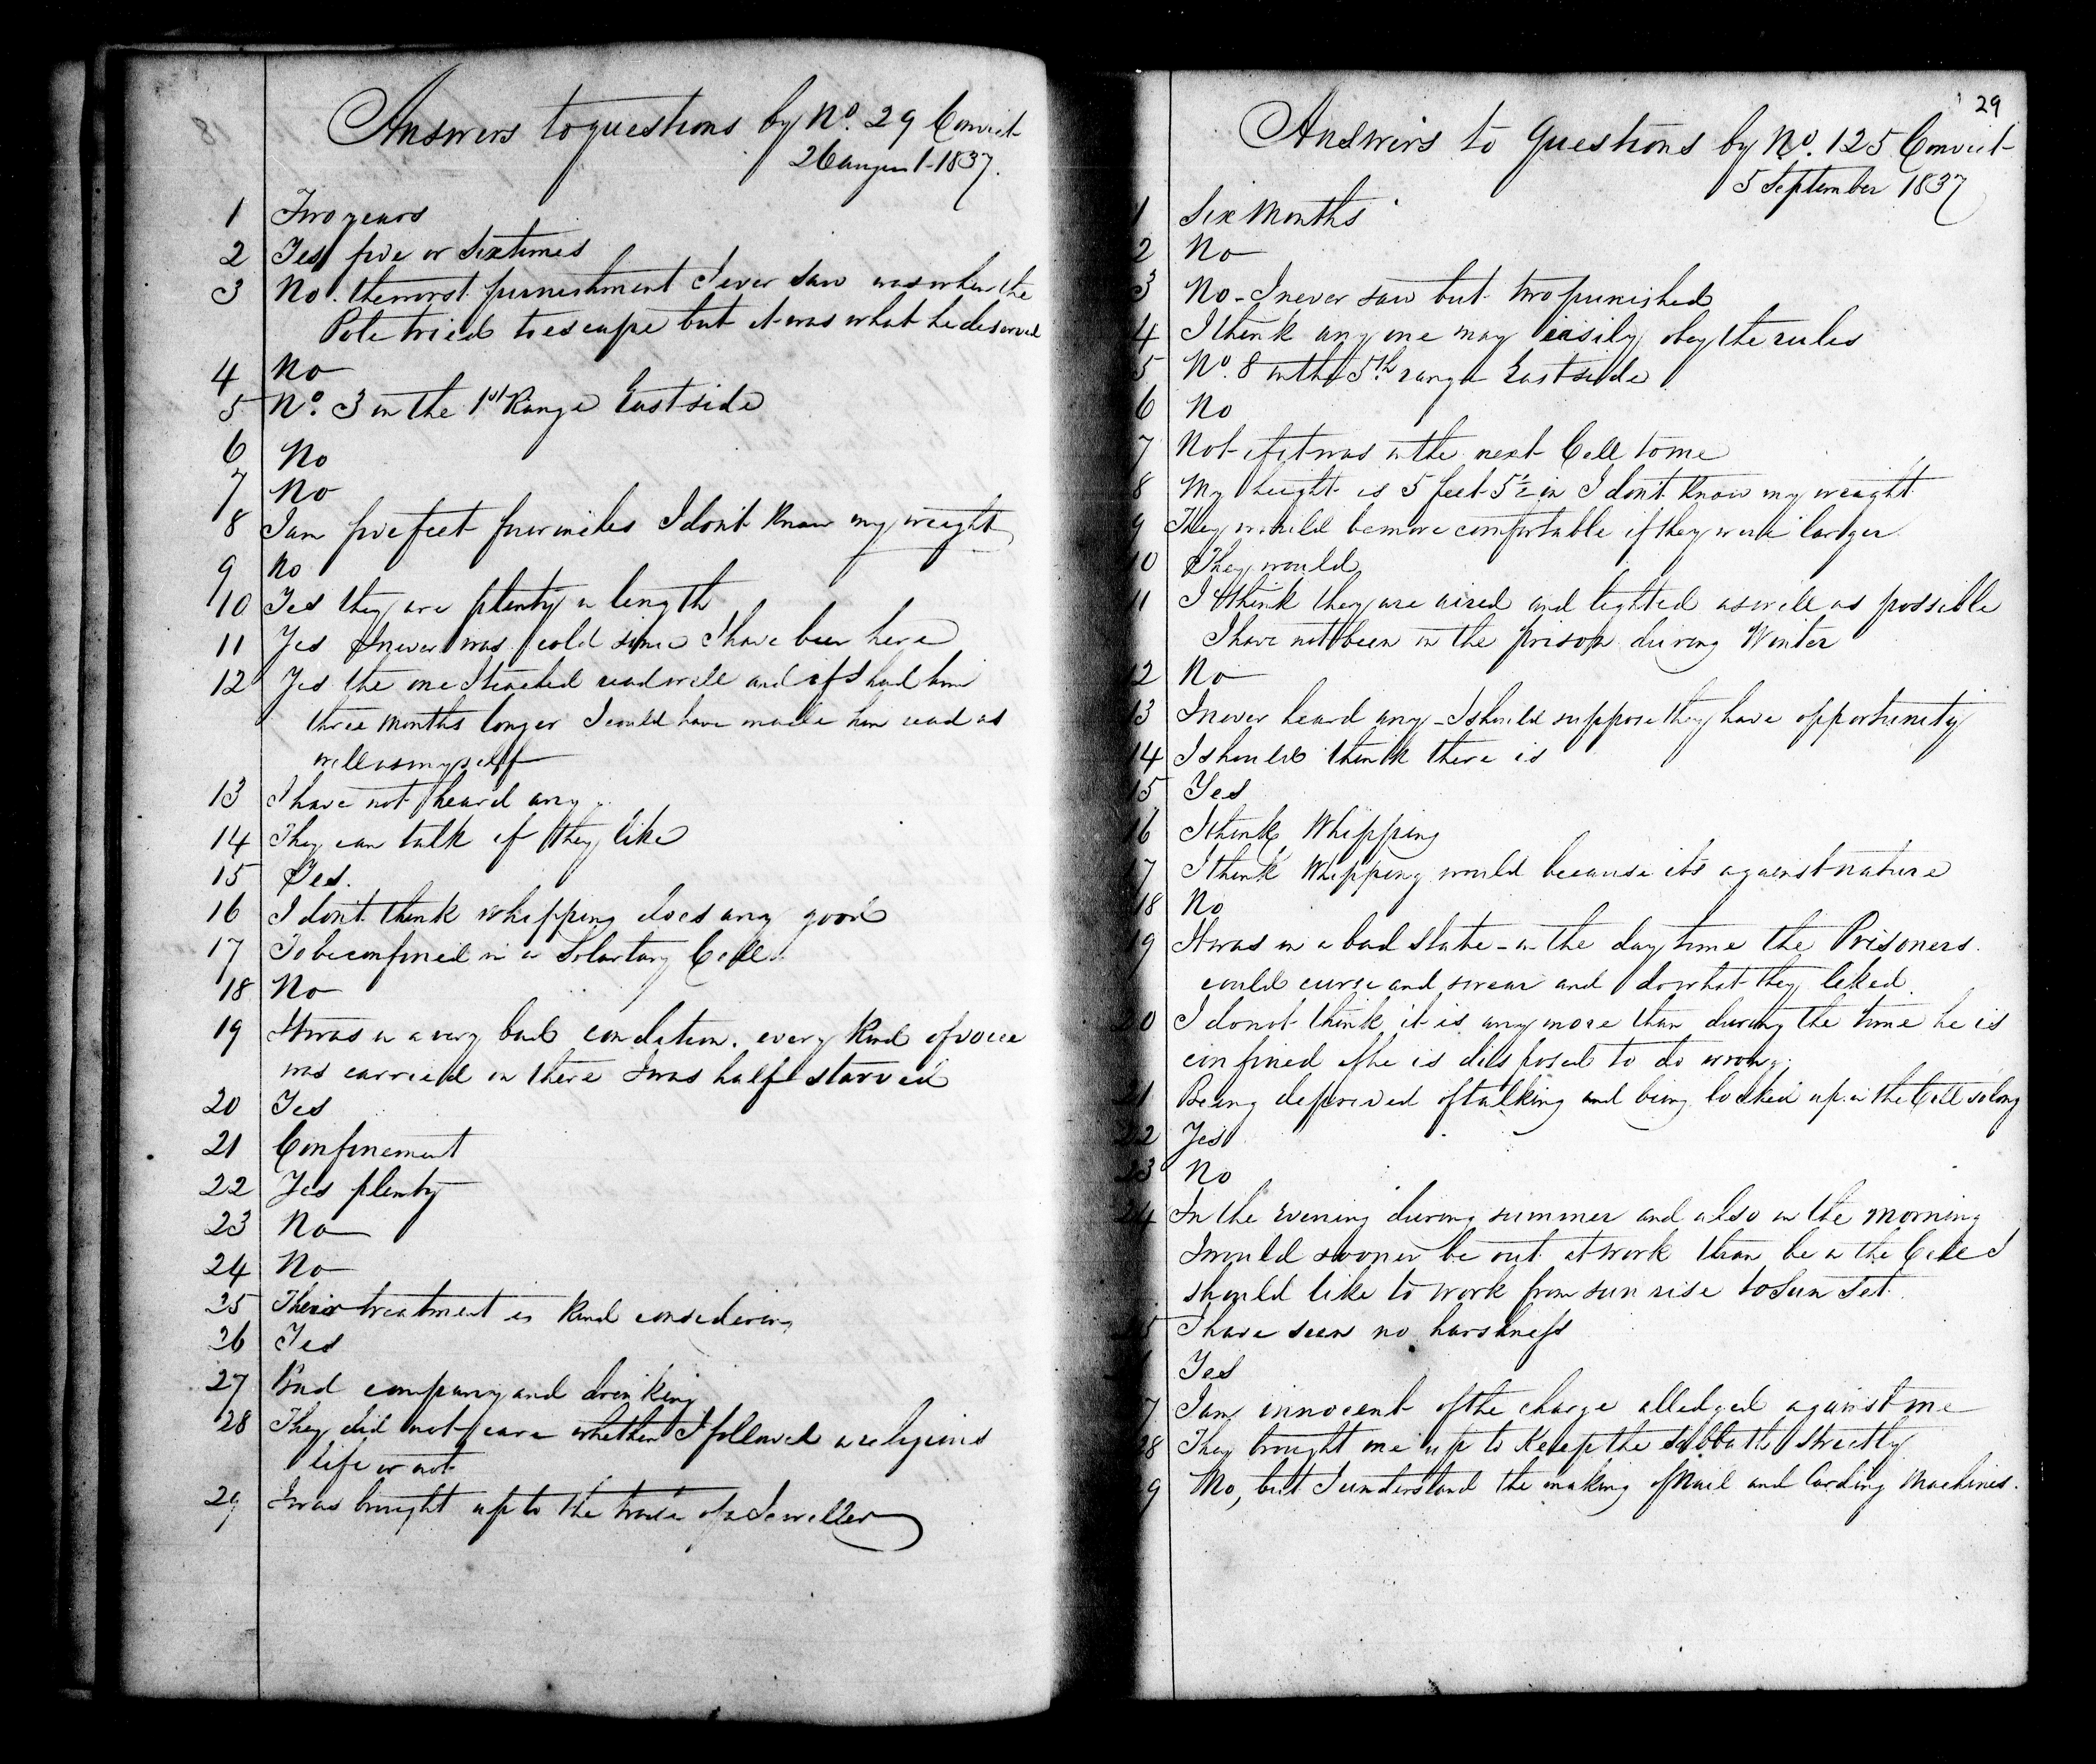 Answers to questions by No. 29 Convict
26 august 1837.
1 Two years
2 Yes five or six times
3 No. the worst punishment I ever saw was when the
Pole tried to escape but it was what he deserved
4 No
5 No. 3 in the 1st Range East side
6 No
7 No
8 I am five feet four inches I don't know my weight
9 No
10 Yes they are plenty in length
11 Yes I never was cold since I have been here
12 Yes the one I teached read well and if I had him
three months longer I could have made him read as
well as myself
13 I have not heard any
14 They can talk if they like
15 Yes.
16 I don't think whipping does any good
17 To be confined in a Solartary Cell
18 No
19 It was in a very bad condition. every kind of vice
was carried on there I was half starved
20 Yes
21 Confinement
22 Yes plenty
23 No
24 No
25 Their treatment is kind considering
26 Yes
27 Bad company and drinking
28 They did not care whether I followed a religious
life or not
29 I was brought up to the trade of a Jeweller
29
Answers to Questions by No. 125 Convict
5 September 1837
1 Six Months
2 No
3 No - I never saw but two punished
4 I think any one may easily obey the rules
5 No. 8 in the 5th range East side
6 No
7 Not if it was in the next Cell to me
8 My height is 5 feet 5½ in I don't know my weight
9 They would be more comfortable if they were larger
10 They would
11 I think they are aired and lighted as well as possible
I have not been in the prison during Winter
12 No
13 I never heard any - I should suppose they have opportunity
14 I should think there is
15 Yes
16 I think Whipping
17 I think Whipping would because it's against nature
18 No
19 It was in a bad state - in the day time the Prisoners
could curse and swear and do what they liked
20 I do not think it is any more than during the time he is
confined if he is disposed to do wrong.
21 Being deprived of talking and being locked up in the Cell so long
22 Yes
23 No
24 In the Evening during summer and also in the morning
I would sooner be out at work than be in the Cell I
should like to work from sun rise to Sun Set
25 I have seen no harshness
Yes
7 I am innocent of the charge alledged against me
28 They brought me up to Keep the Sabbath strictly
9 No, but I understand the making of Nail and Carding Machines.